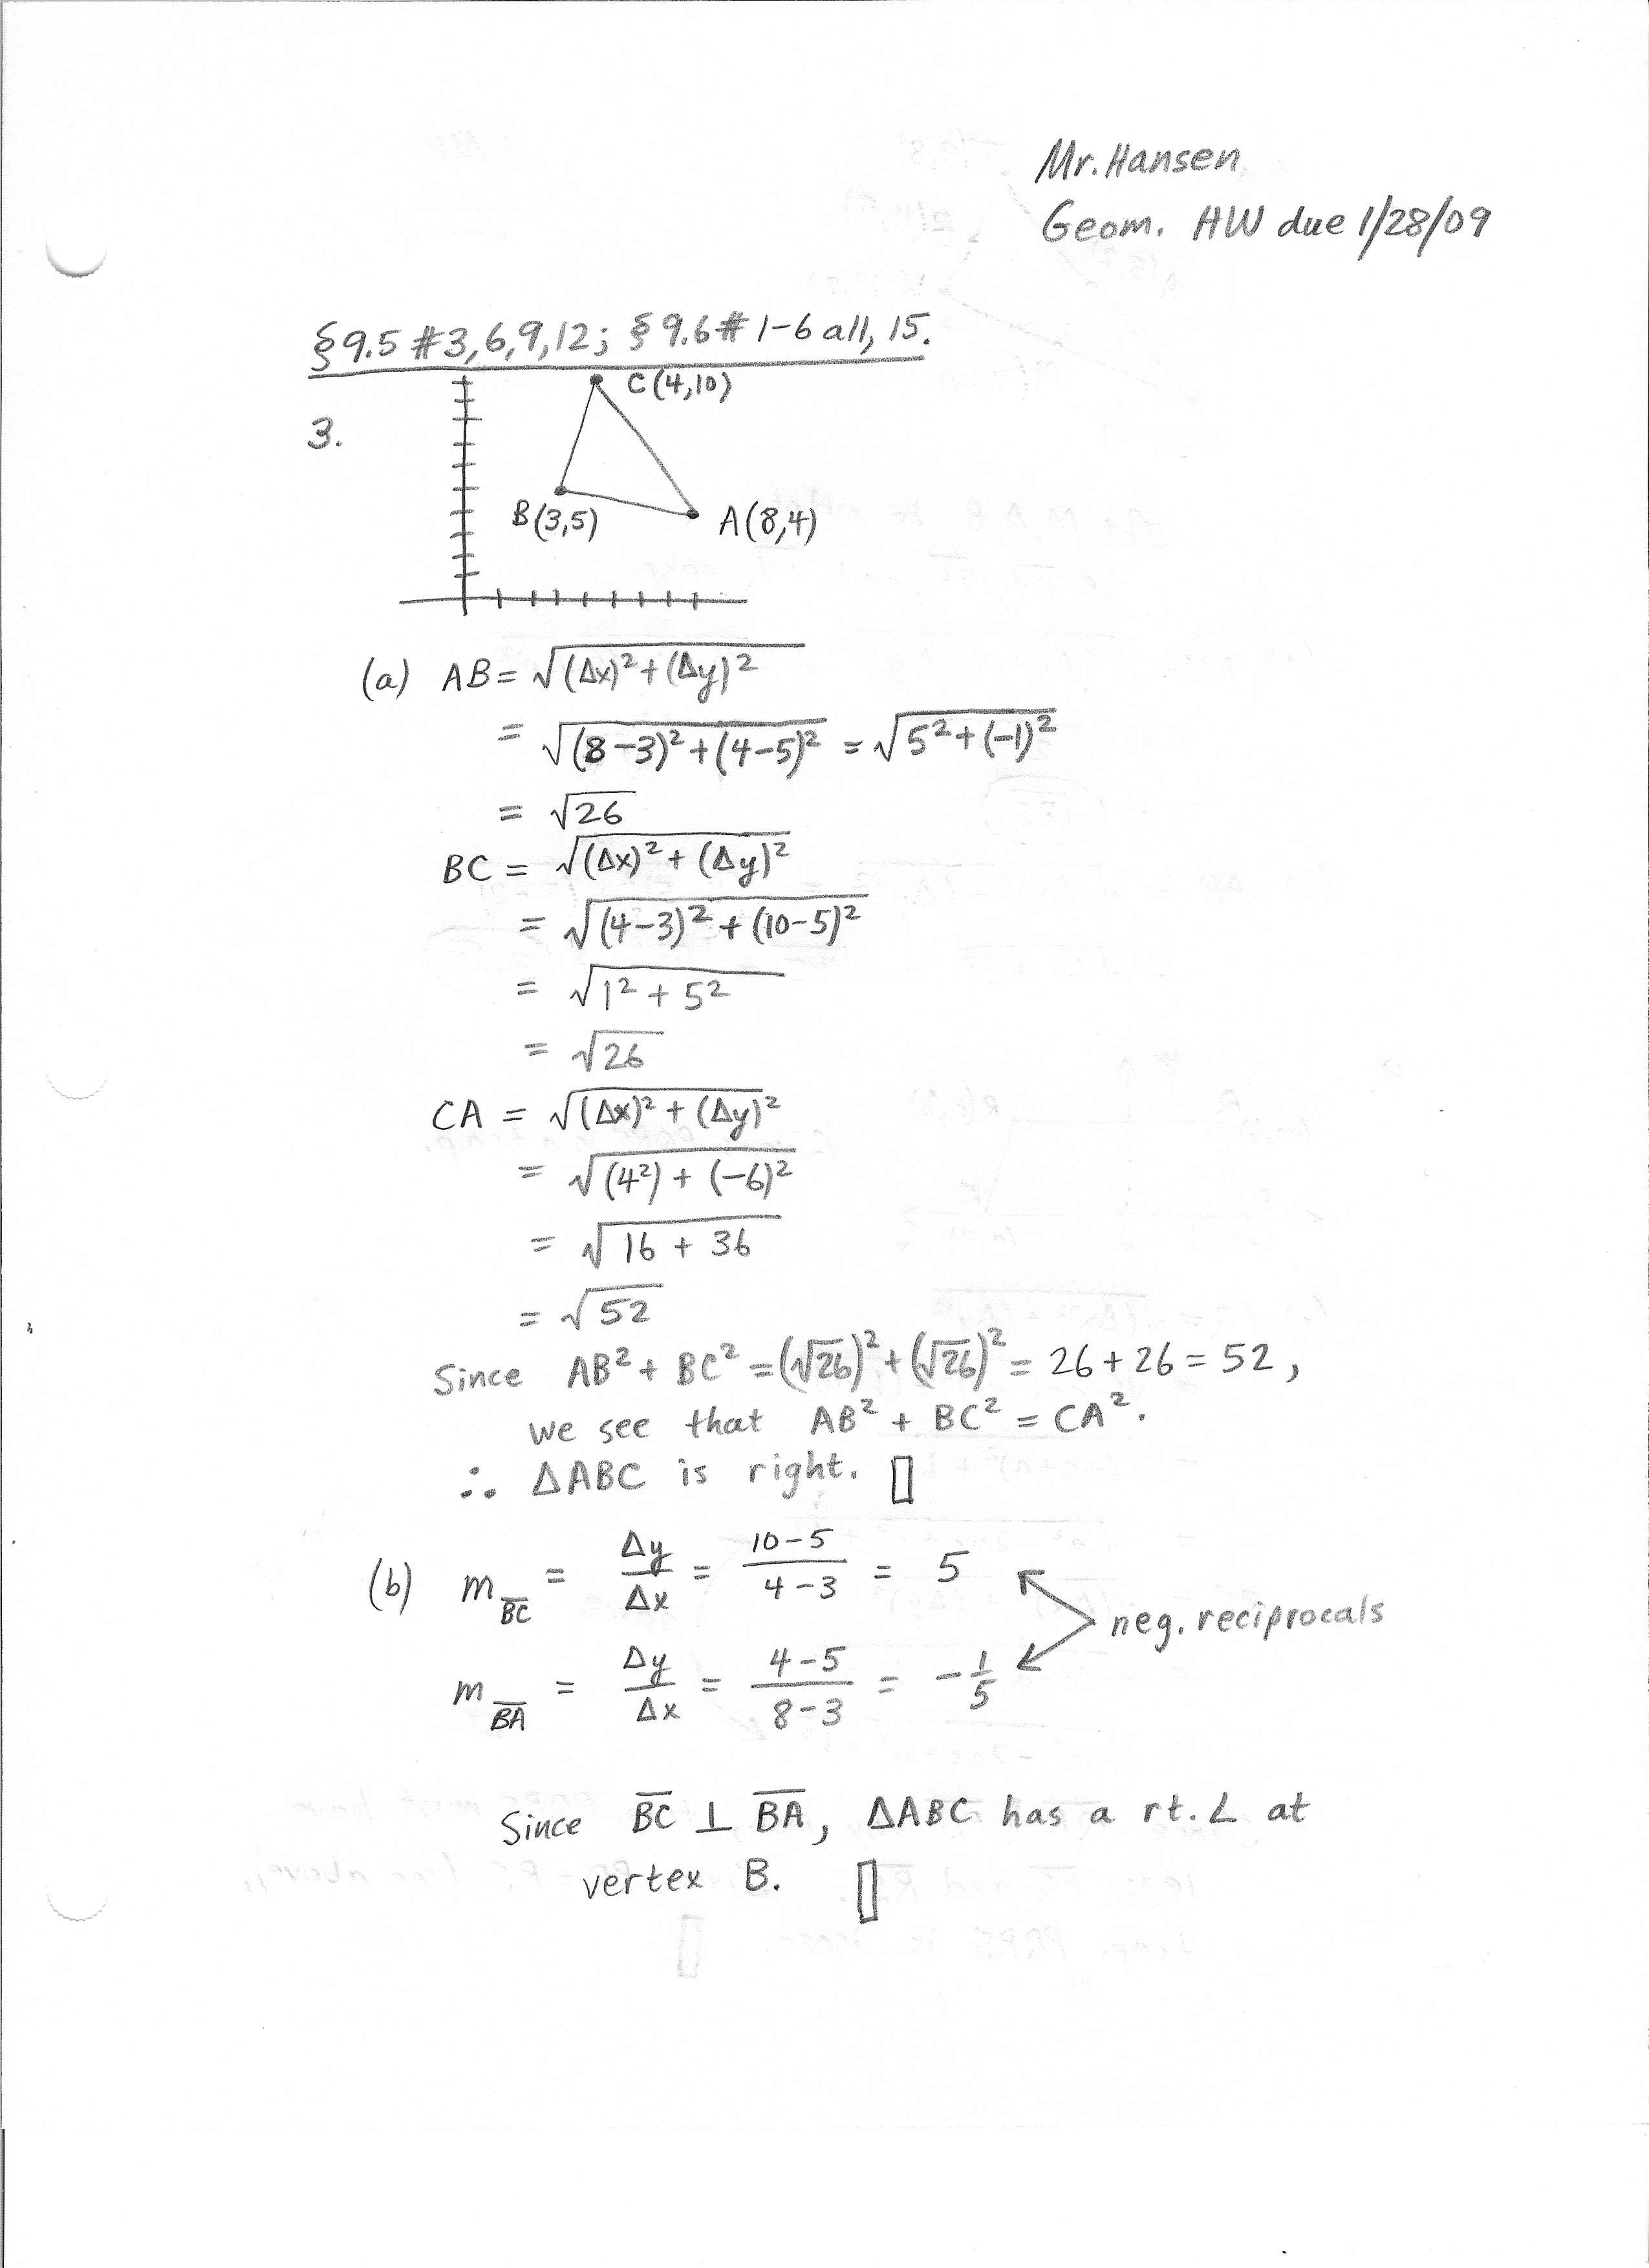 Mr. Hansen
Geom. HW due 1/28/09
§9.5 #3,6,9,12; §9.6 # 1-6 all, 15.
C(4,10)
3.
B(3,5)
A(8,4)
(a) AB = √((Δx)² + (Δy)²)
= √((8-3)² + (4-5)²) = √(5² + (-1)²)
= √26
BC = √((Δx)² + (Δy)²)
= √((4-3)² + (10-5)²)
= √(1² + 5²)
= √26
CA = √((Δx)² + (Δy)²)
= √((4²) + (-6)²)
= √(16 + 36)
= √52
Since AB² + BC² = (√26)² + (√26)² = 26 + 26 = 52,
we see that AB² + BC² = CA².
∴ ΔABC is right. ▯
(b) m_BC̅ = Δy/Δx = (10-5)/(4-3) = 5
neg. reciprocals
m_BA̅ = Δy/Δx = (4-5)/(8-3) = -1/5
Since B̅C̅ ⊥ B̅A̅, ΔABC has a rt. ∠ at
vertex B. ▯